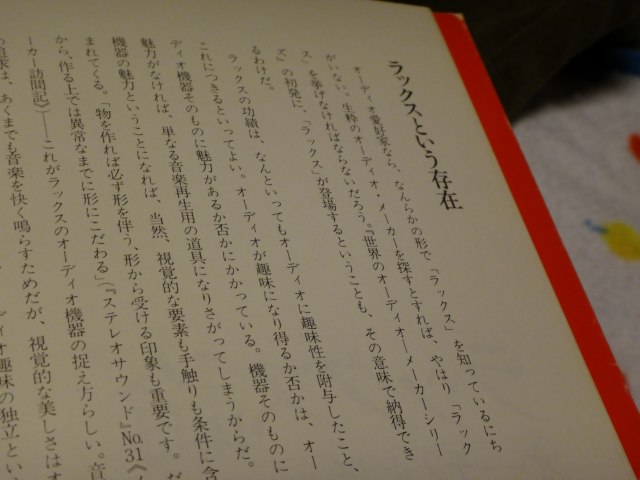 ラックスという存在
オーディオ愛好家なら、なんらかの形で「ラックス」を知っているにち
がいない。生粋のオーディオ・メーカーを探すとすれば、やはり「ラック
ス」を挙げなければならないだろう。『世界のオーディオ』メーカーシリー
ズ』の初発に、「ラックス」が登場するということも、その意味で納得でき
るわけだ。
ラックスの功績は、なんといってもオーディオに趣味性を附与したこと、
これにつきるといってよい。オーディオが趣味になり得るか否かは、オー
ディオ機器そのものに魅力があるか否かにかかっている。機器そのものに
魅力がなければ、単なる音楽再生用の道具になりさがってしまうからだ。
機器の魅力ということになれば、当然、視覚的な要素も手触りも条件に含
まれてくる。「物を作れば必ず形を伴う、形から受ける印象も重要です。だ
から、作る上では異常なまでに形にこだわる」(『ステレオサウンド』No.31《
ーカー訪問記》)──これがラックスのオーディオ機器の捉え方らしい。音
は、あくまでも音楽を快く鳴らすためだが、視覚的な美しさはオ
ディオ趣味の独立とい